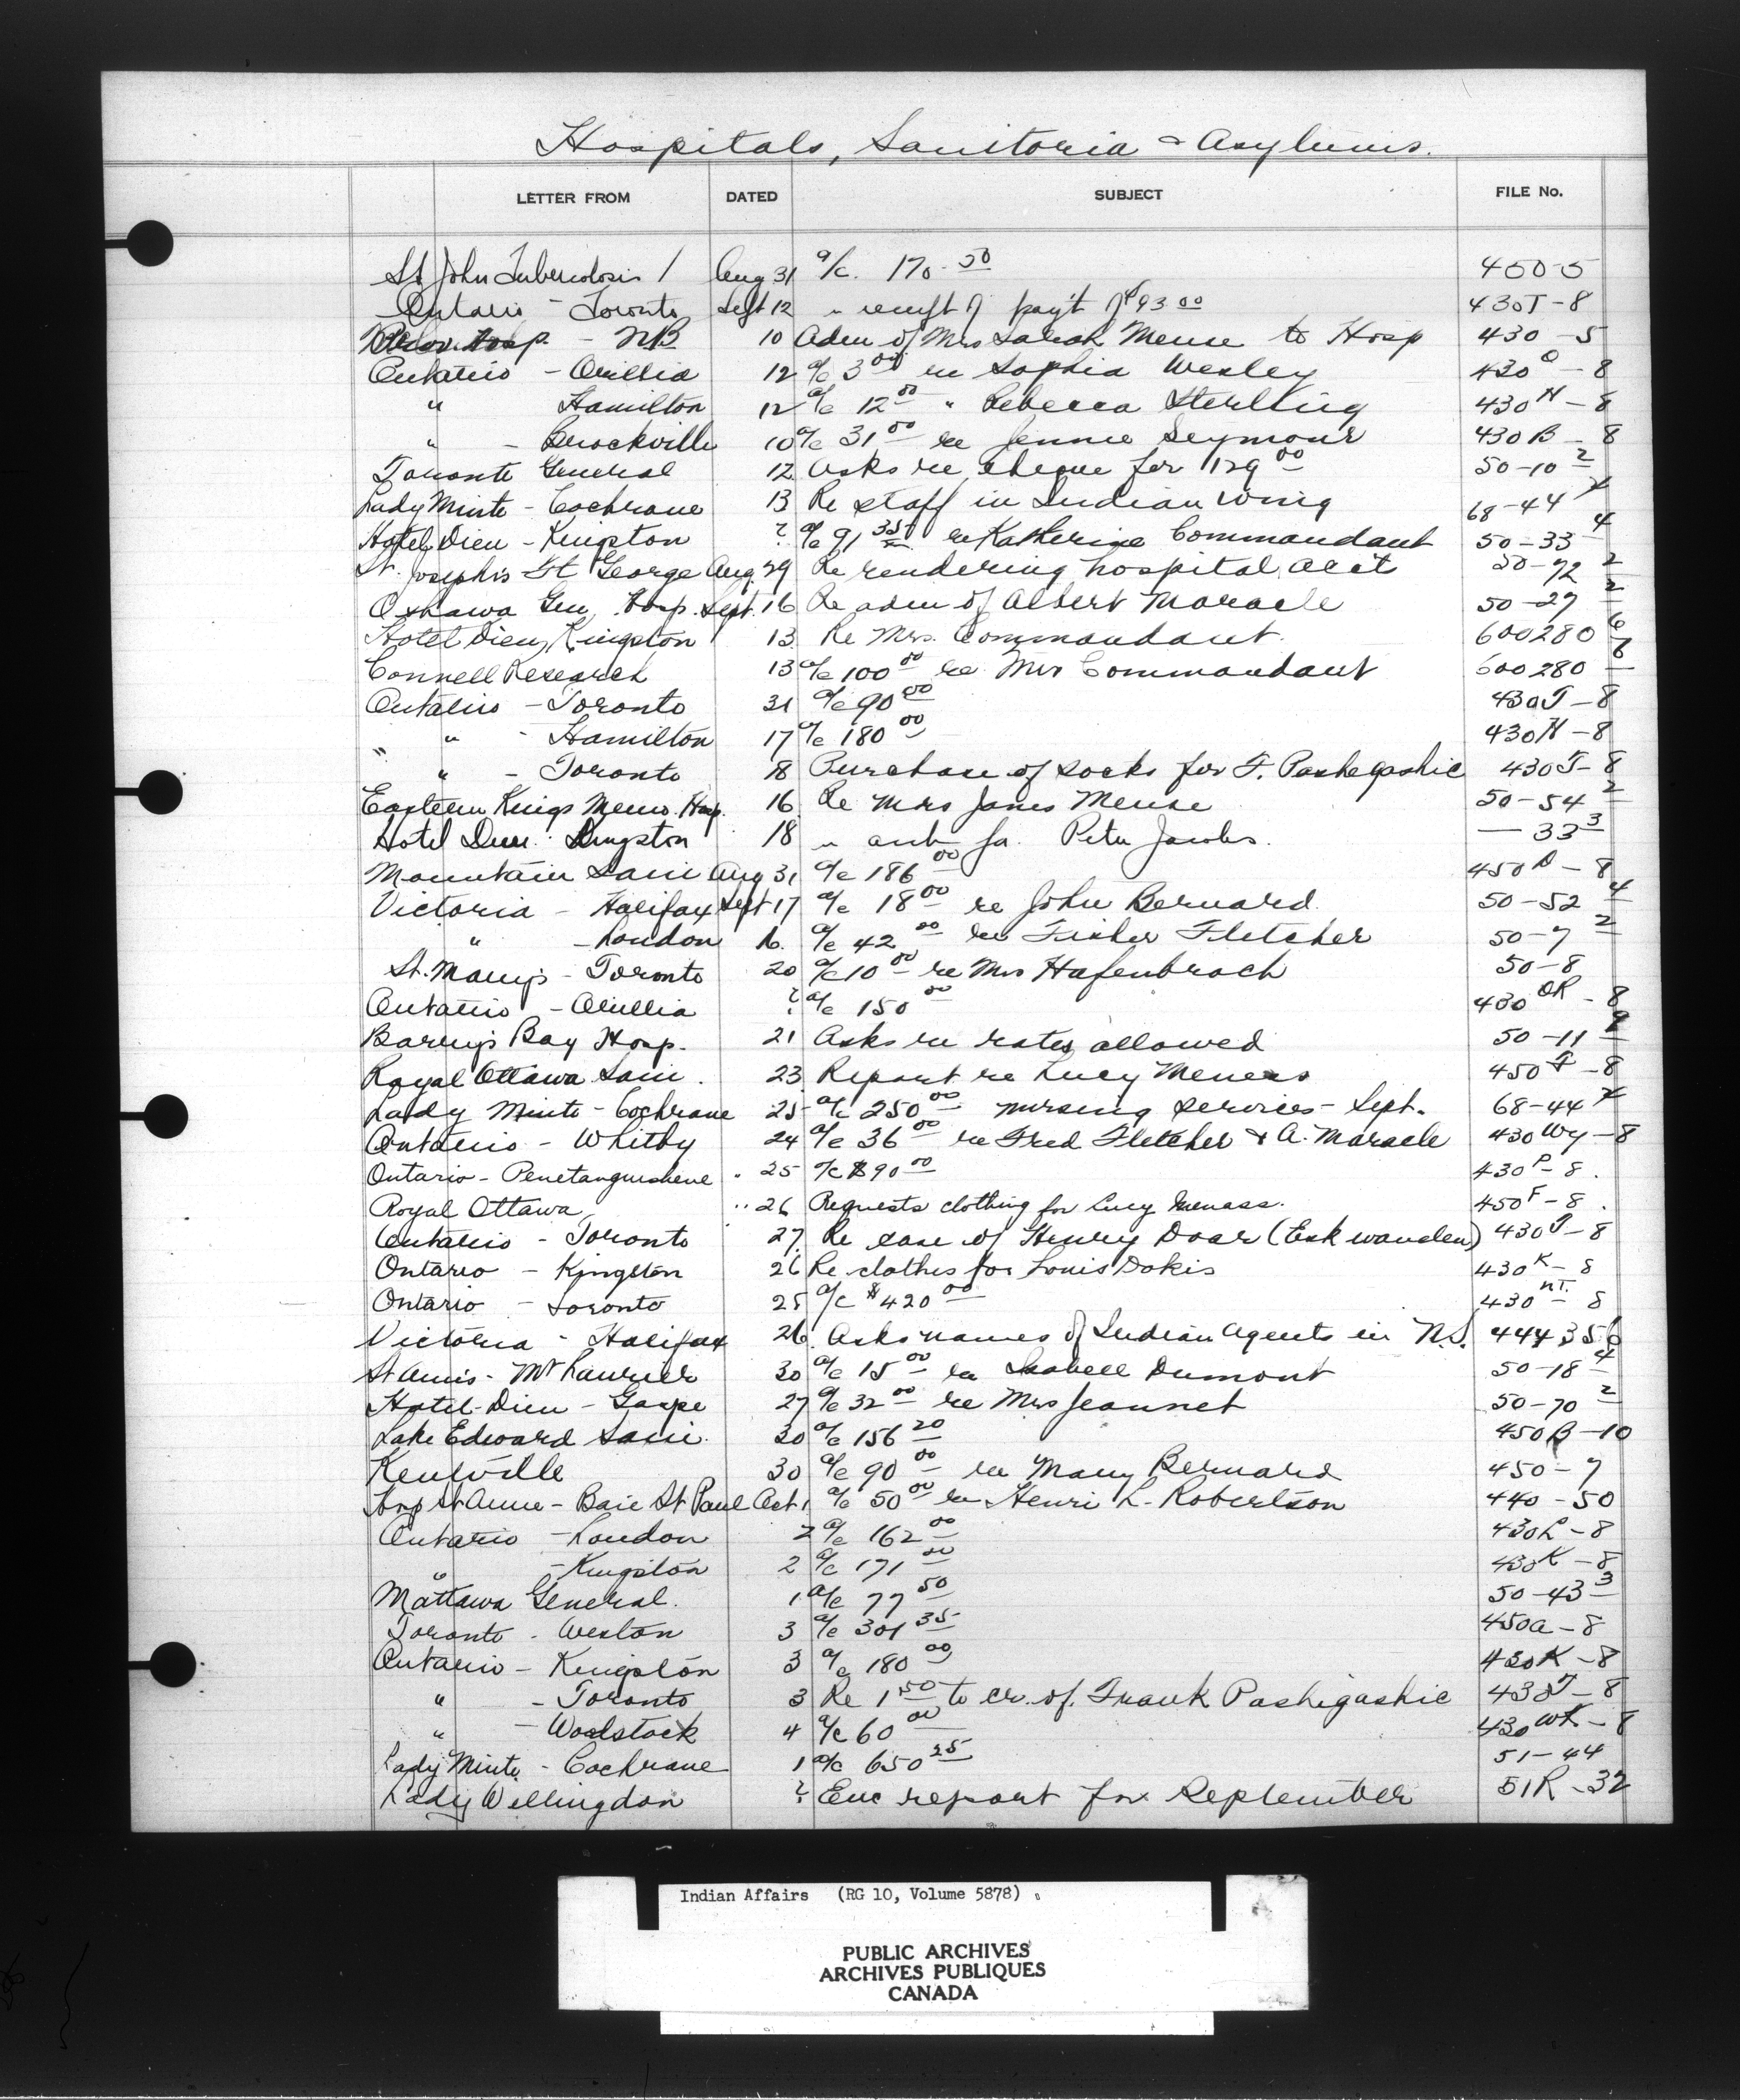 Hospitals, Sanitoria & Asylums.
LETTER FROM DATED SUBJECT FILE No.
St John Tuberculosis Aug 31 a/c. 170.50 450-5
Ontario - Toronto Sept 12 " receipt of pay't of $93.00 430T-8
Prov. Hosp. - NB 10 Adm of Mrs Sarah Meuse to Hosp 430-5
Ontario - Orillia 12 a/c 3 00 re Sophia Wesley 430 O-8
" Hamilton 12 a/c 12 00 " Rebecca Sterling 430 H-8
" - Brockville 10 a/c 31 00 re Jennie Seymour 430 B-8
Toronto General 12 Asks re cheque for 129 00 50-10 2
Lady Minto - Cochrane 13 Re staff in Indian wing 68-44
Hotel Dieu - Kingston ? a/c 91 35 re Katherine Commandant 50-33 4
St. Joseph's St George Aug. 29 Re rendering hospital acct 50-72 2
Oshawa Gen. Hosp. Sept. 16 Re adm of Albert Maracle 50-27 2
Hotel Dieu, Kingston 13 Re Mrs. Commandant. 600280 6
Connell Research 13 a/c 100 00 re Mrs Commandant 600280 6
Ontario - Toronto 31 a/c 90 00 430T-8
" " - Hamilton 17 a/c 180 00 430H-8
" - Toronto 18 Purchase of socks for F. Pashegashic 430T-8
Eastern Kings Memo. Hosp. 16 Re Mrs James Meuse 50-54 2
Hotel Dieu Kingston 18 " auth for Peter Jacobs. — 33 3
Mountain Sani Aug 31 a/c 186 00 450 D-8
Victoria - Halifax Sept 17 a/c 18 00 re John Bernard. 50-52 4
" - London 16. a/c 42 00 re Fisher Fletcher 50-7 2
St. Mary's - Toronto 20 a/c 10 00 re Mrs Hafenbrach 50-8
Ontario - Orillia ? a/c 150 00 430 OR-8
Barry's Bay Hosp. 21 Asks re rates allowed 50-11
Royal Ottawa Sani. 23 Report re Lucy Menass 450 F-8
Lady Minto - Cochrane 25 a/c 250 00 nursing services - Sept. 68-44
Ontario - Whitby 24 a/c 36 00 re Fred Fletcher & A. Maracle 430 Wy-8
Ontario - Penetanguishene " 25 a/c $90 00 430 P-8.
Royal Ottawa " 26 Requests clothing for Lucy Menass. 450 F-8.
Ontario - Toronto 27. Re case of Henry Doar (Eskwanden) 430 T-8
Ontario - Kingston 26 Re clothes for Louis Dokis 430 K-8
Ontario - Toronto 25 a/c $420 00 430 NT. 8
Victoria - Halifax 26. Asks names of Indian Agents in N.S. 444356
St Annis - Mt Laurier 30 a/c 15 00 re Isabell Dumont 50-18 4
Hotel-Dieu - Gaspe 27 a/c 32 00 re Mrs Jeannet 50-70 2
Lake Edward Sani. 30 a/c 156 20 450B-10
Kentville 30 a/c 90 00 re Mary Bernard 450-7
Hosp St Anne - Baie St Paul Oct 1 a/c 50 00 re Henri L. Robertson 440-50
Ontario - London 2 a/c 162 00 430L-8
" - Kingston 2 a/c 171 00 430K-8
Mattawa General. 1 a/c 77 50 50-43 3
Toronto - Weston 3 a/c 301 35 450a-8
Ontario - Kingston 3 a/c 180 00 430K-8
" - Toronto 3 Re 1 50 to cr. of. Frank Pashigashic 430T-8
" - Woodstock 4 a/c 60 00 430 WK-8
Lady Minto - Cochrane 1 a/c 650 25 51-44
Lady Wellingdon ? Enc report for September 51R-32
Indian Affairs (RG 10, Volume 5878)
PUBLIC ARCHIVES
ARCHIVES PUBLIQUES
CANADA